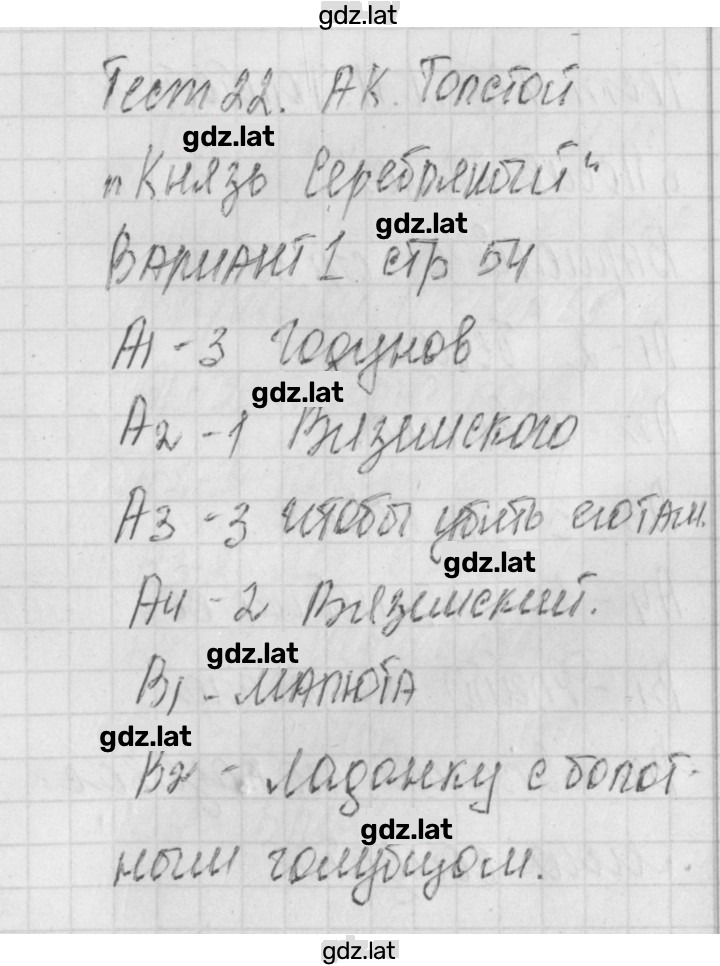 gdz.lat
Тест 22. А.К. Толстой
gdz.lat
"Князь Серебряный"
gdz.lat
Вариант 1 стр 54
А1 - 3 Годунов
gdz.lat
А2 - 1 Вяземского
А3 - 3 чтобы убить его там.
gdz.lat
А4 - 2 Вяземский.
gdz.lat
В1 - Малюта
gdz.lat
В2 - Ладанку с болот-
gdz.lat
ным голубцом.
gdz.lat